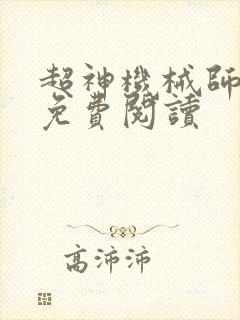 超神機械師
免費閱讀
高沛沛